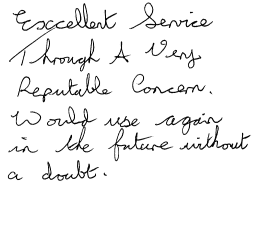 Exccellent Service
Through A Very
Reputable Concern.
Would use again
in the future without
a doubt.